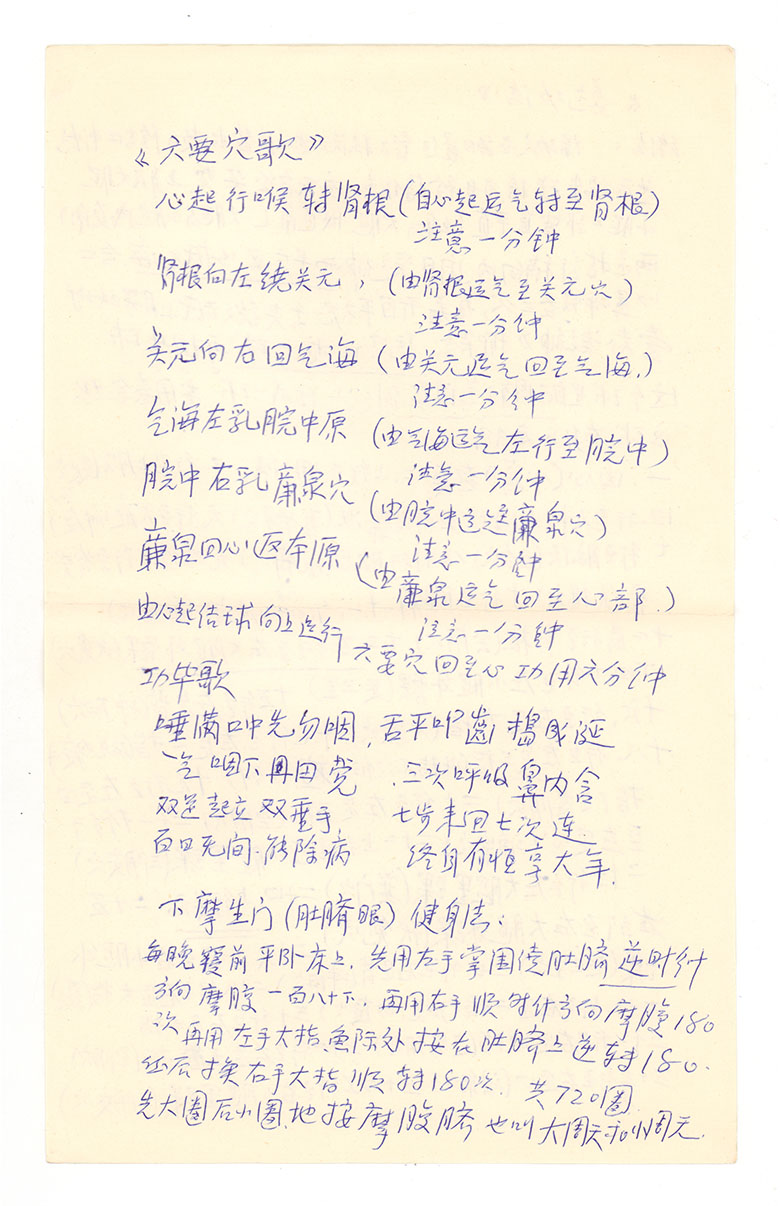 《六要穴歌》
心起行喉转肾根(自心起运气转至肾根)
注意一分钟
肾根向左绕关元,(由肾根运气至关元穴)
注意一分钟
关元向右回气海(由关元运气回至气海.)
注意一分钟
气海左乳脘中原(由气海运气左行至脘中)
脘中右乳廉泉穴 注意一分钟
(由脘中运至廉泉穴)
廉泉回心返本原 注意一分钟
(由廉泉运气回至心部.)
由心起结球向上运行 注意一分钟
六要穴回至心功用六分钟
功毕歌
唾满口中先勿咽,舌平叩齒搗成涎
气咽下丹田觉 三次呼吸鼻内含
双足起立双垂手 七步来回七次连.
百日无间能除病 终身有恒享大年.
下摩生门(肚脐眼)健身法:
每晚寝前平卧床上,先用左手掌围绕肚脐逆时针
方向摩腹一百八十下,再用右手顺时针方向摩腹180
次再用左手大指鱼际处按在肚脐上逆转180.
然后换右手大指顺转180次.共720圈
先大圈后小圈地按摩腹脐也叫大周天和小周天.